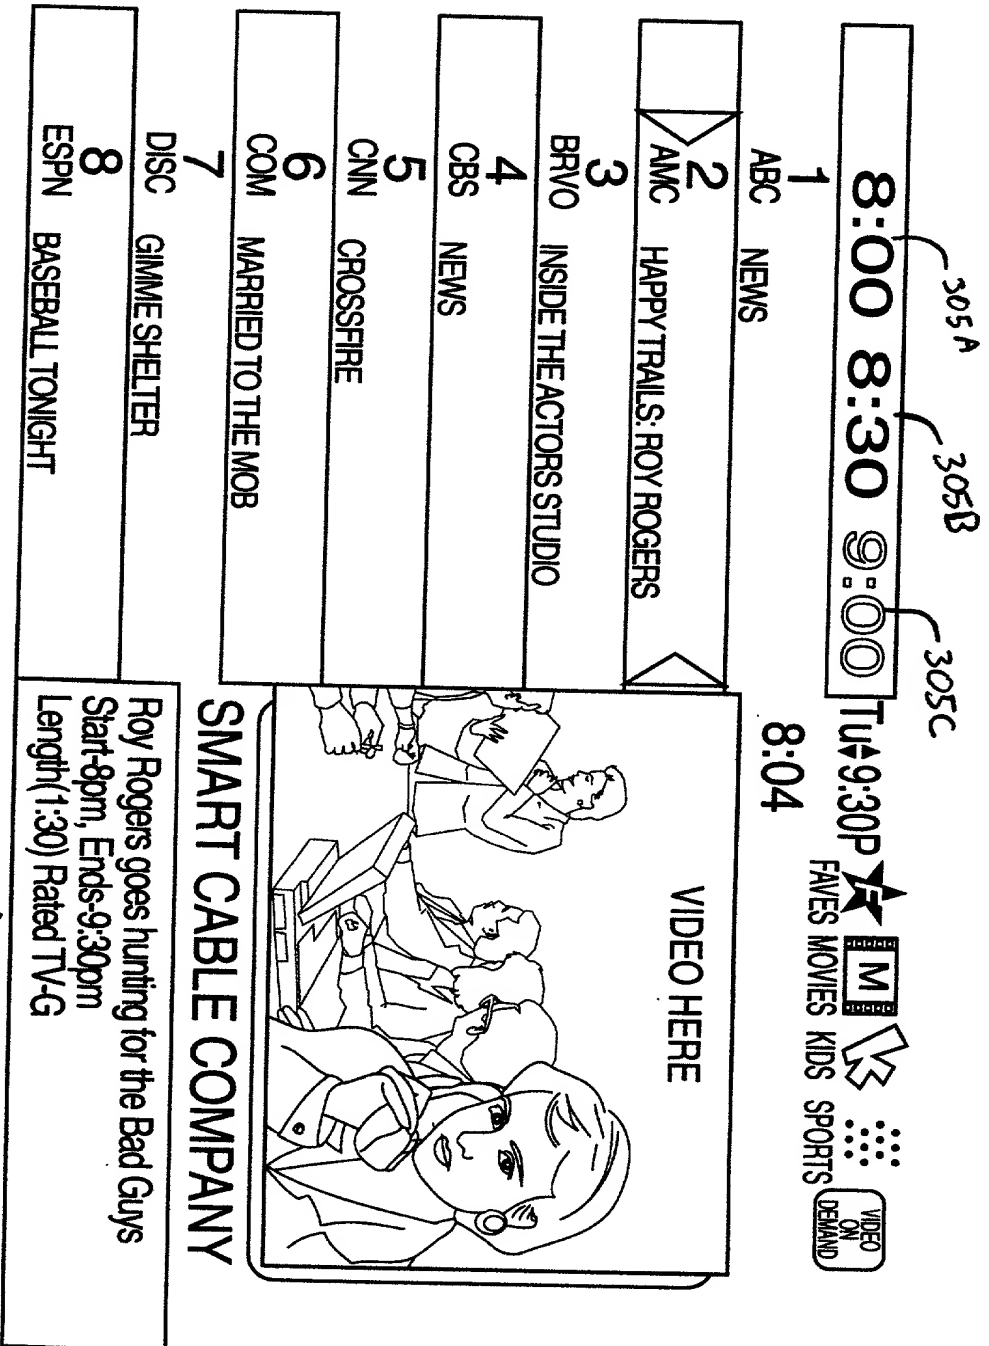 305A 305B 305C
8:00 8:30 9:00 Tu 9:30P F M K
FAVES MOVIES KIDS SPORTS VIDEO ON DEMAND
8:04
1
ABC NEWS
2
AMC HAPPY TRAILS: ROY ROGERS
3
BRVO INSIDE THE ACTORS STUDIO
4
CBS NEWS
5
CNN CROSSFIRE
6
COM MARRIED TO THE MOB
7
DISC GIMME SHELTER
8
ESPN BASEBALL TONIGHT
VIDEO HERE
SMART CABLE COMPANY
Roy Rogers goes hunting for the Bad Guys
Start-8pm, Ends-9:30pm
Length(1:30) Rated TV-G